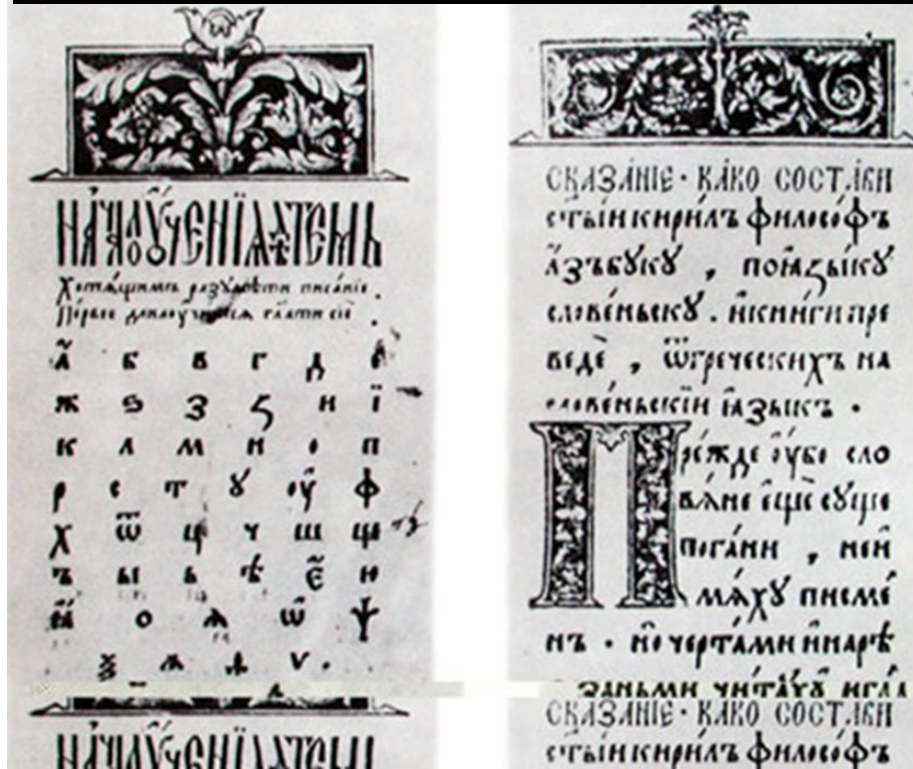 НАЧАЛО ꙋЧЕНЇѦ ДѢТЕМЬ
Хотѧщимъ разꙋмѣти писанїе
Первое
А҆ б в г д е
ж ѕ з ꙁ и ї
к л м н о п
р с т ꙋ оу ф
х ѿ ц ч ш щ
ъ ы ь ѣ є ю
ꙗ о ѧ ѡ ѱ
ѯ ѫ ѵ .
НАЧАЛО ꙋЧЕНЇѦ ДѢТЕМЬ
СКАЗА́НІЕ · КА́КО СОСТА́ВИ
ст҃ы́и кири́лъ филосо́фъ
а҆́зъбꙋкꙋ , по ꙗ҆зы́кꙋ
слове́ньскꙋ . и҆ кни́ги пре
ведѐ , ѿ гре́ческихъ на
слове́ньскїи ꙗ҆зы́къ .
Пре́жде оу҆́бо сло
вѧ́не є҆щѐ сꙋ́ще
пога́ни , не и҆
мѧ́хꙋ писме́
нъ . но черта́ми и҆ нарѣ́
ꙁаньми чита́хꙋ и гада
СКАЗА́НІЕ · КА́КО СОСТА́ВИ
ст҃ы́и кири́лъ филосо́фъ